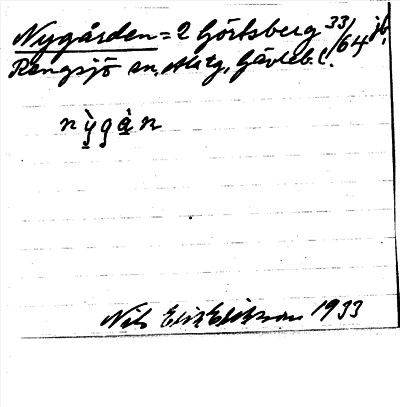 Nygården = 2 Görtsberg 33/64 jb.
Rengsjö sn, Gävleb. l.
nỳ̠gå̠̀n
Nils Erik Erikson 1933